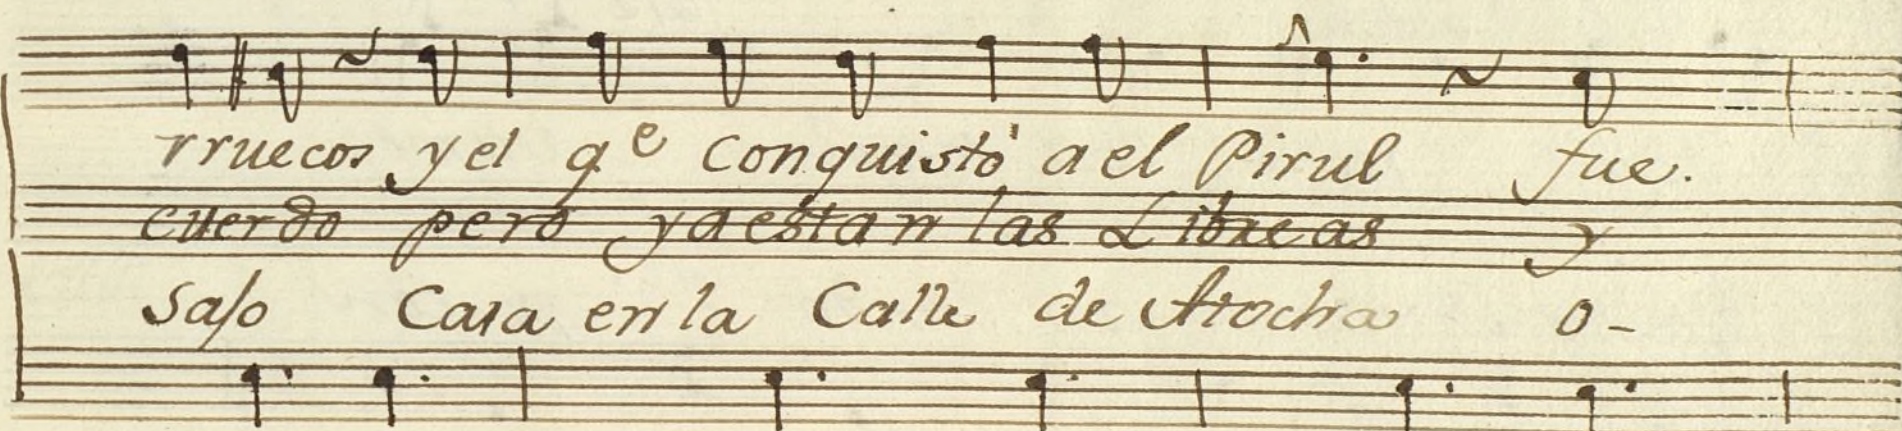 rruecos y el qe conquistó a el Pirul fue.
cuerdo pero ya estan las Libreas y
Casa en la Calle de Atocha o-